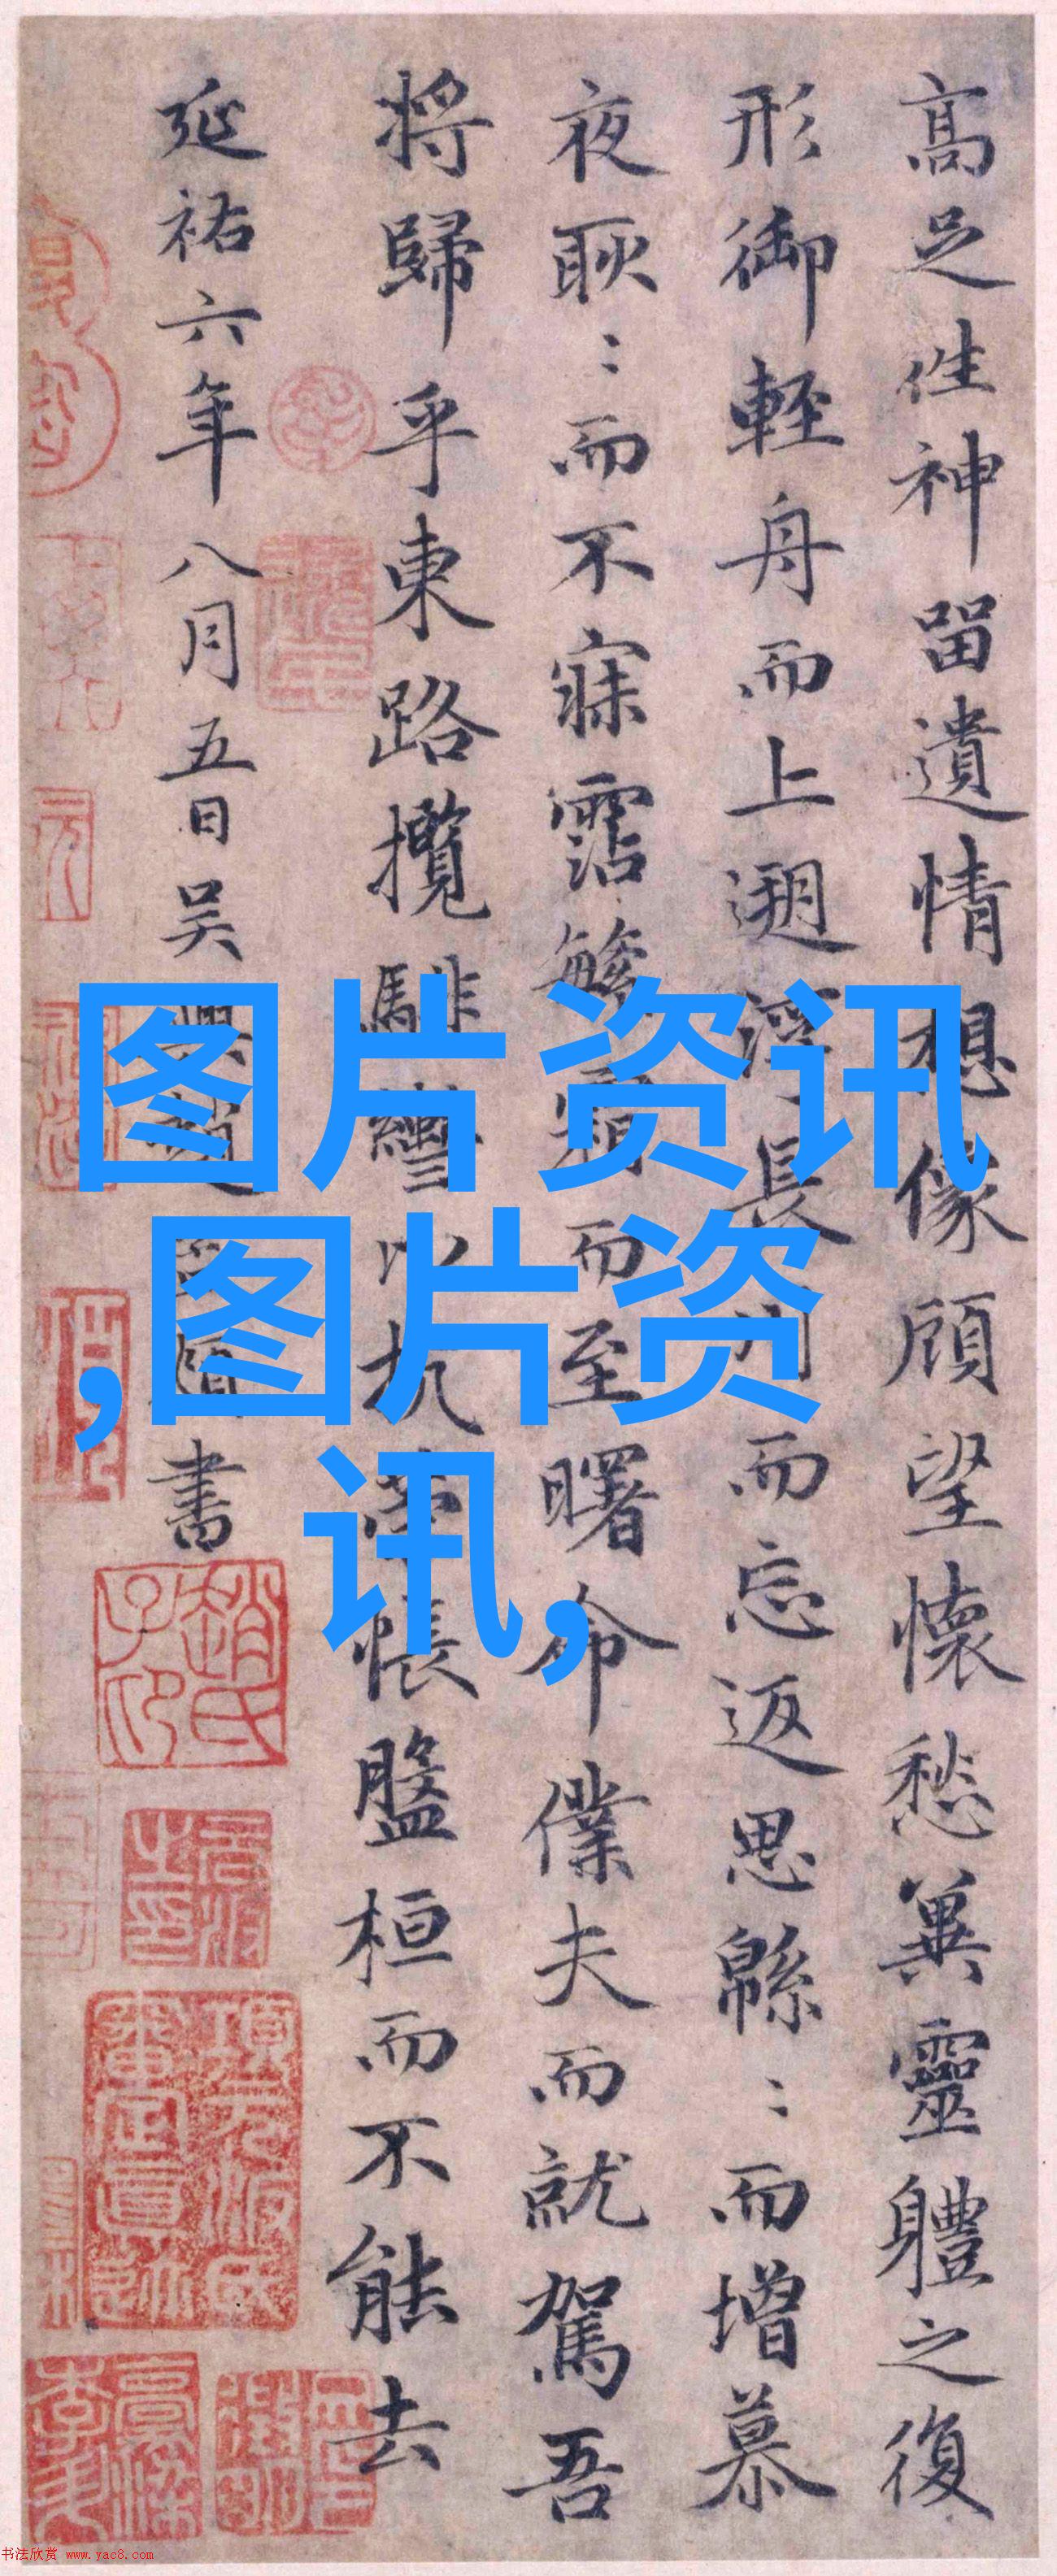 高足往神留遺情想像顧望懷愁冀靈體之復
形御輕舟而上遡浮長川而忘返思緜〻而增慕
夜耿〻而不寐霑繁霜而至曙命僕夫而就駕吾
將歸乎東路攬騑轡以抗策悵盤桓而不能去
延祐六年八月五日吳興趙孟頫書
图片资讯
,图片资
讯,
趙氏子印
項元汴氏審定真跡
书法欣赏 www.yac8.com